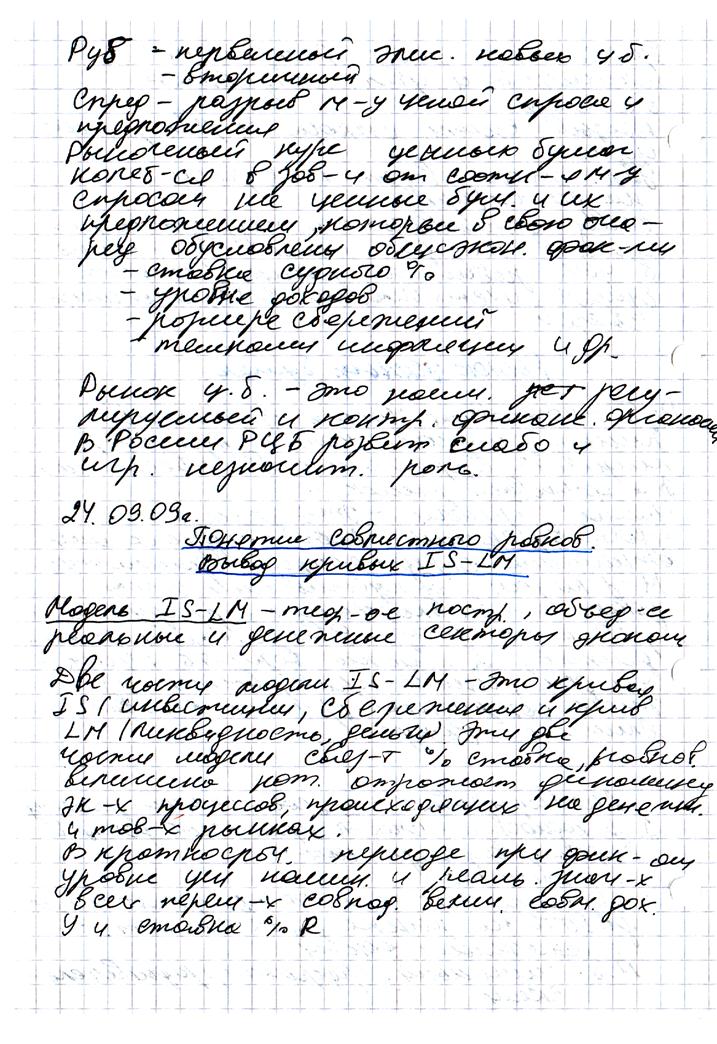 Руб = первичный эмис. новых ц.б.
- вторичный
Спред - разрыв м-у ценой спроса и
предложения
Рыночный курс ценных бумаг
колеб-ся в зав-и от соотн-я м-у
спросом на ценные бум. и их
предложением, которые в свою оче-
редь обусловлены общеэкон. фак-ми
- ставка ссудного %
- уровне доходов
- размере сбережений
- темпами инфляции и др.
Рынок ц.б. - это регу-
лируемый и контр. финанс. органами
В России РЦБ развит слабо и
игр. незначит. роль.
24.09.09г.
Понятие совместного равнов.
Вывод кривых IS-LM
Модель IS-LM - теор-ое постр., объед-ее
реальные и денежные секторы эконом
Две части модели IS-LM - это кривая
IS (инвестиции, сбережения и крив
LM (ликвидность, деньги) Эти две
части модели связ-т % ставка, равнов.
величина кот. отражает динамику
эк-х процессов, происходящих на денежн.
и тов-х рынках.
В краткосроч. периоде при фик-ом
уровне цен номин. и реаль. знач-х
всех перем-х совпад. велич. совок. дох.
У и ставка % R